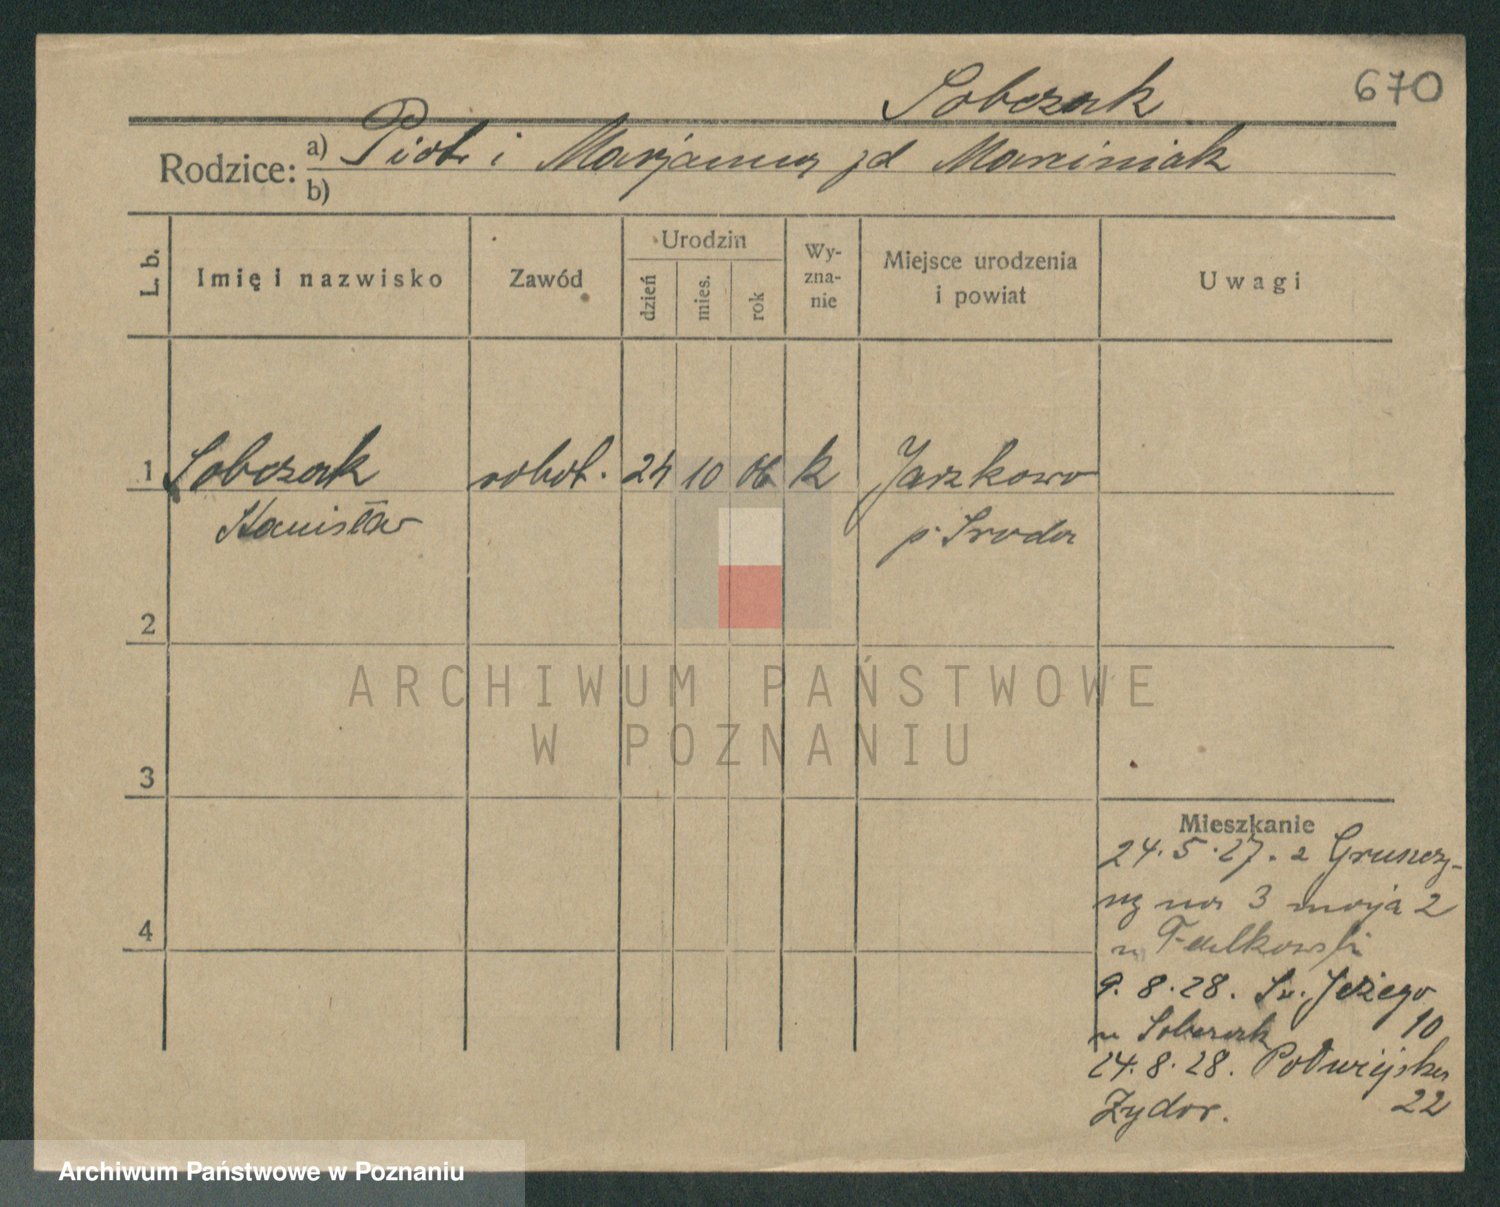 Sobczak
670
Rodzice: a) Piotr i Marjanna zd Marciniak
b)
L. b.
Imię i nazwisko
Zawód
Urodzin
dzień
mies.
rok
Wy-
zna-
nie
Miejsce urodzenia
i powiat
Uwagi
1 Sobczak robot. 24 10 06 k Jarzkowo
Stanisław p. Sroda
2
ARCHIWUM PAŃSTWOWE
W POZNANIU
3
Mieszkanie
24.5.27. z
na 3 maja 2
u
4
9.8.28. Św. Jerzego
u Sobczak 10
24.8.28. Półwiejska
22
Archiwum Państwowe w Poznaniu